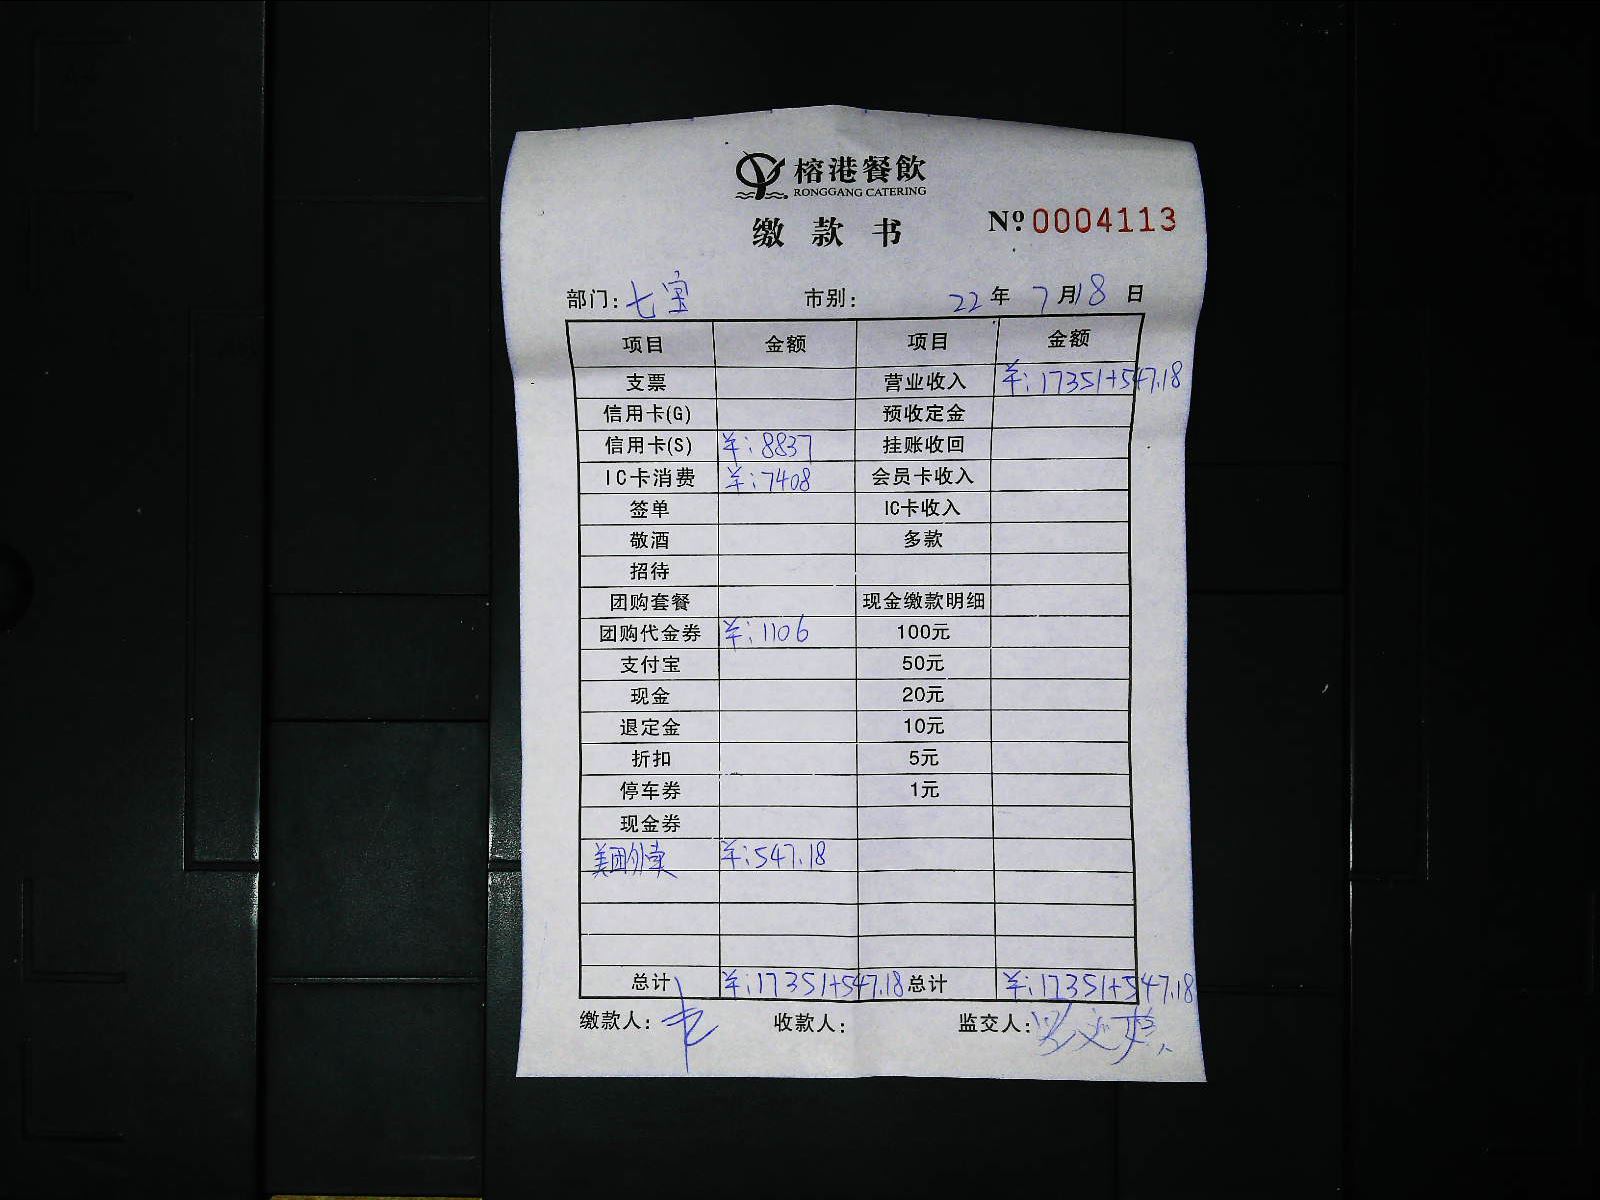 榕港餐飲
RONGGANG CATERING
缴款书 Nº 0004113
部门：七宝 市别： 22年 7月18日
项目 金额 项目 金额
支票 营业收入 ¥：17351+547.18
信用卡(G) 预收定金
信用卡(S) ¥：8837 挂账收回
IC卡消费 ¥：7408 会员卡收入
签单 IC卡收入
敬酒 多款
招待
团购套餐 现金缴款明细
团购代金券 ¥：1106 100元
支付宝 50元
现金 20元
退定金 10元
折扣 5元
停车券 1元
现金券
美团外卖 ¥：547.18
总计 ¥：17351+547.18 总计 ¥：17351+547.18
缴款人： 收款人： 监交人：